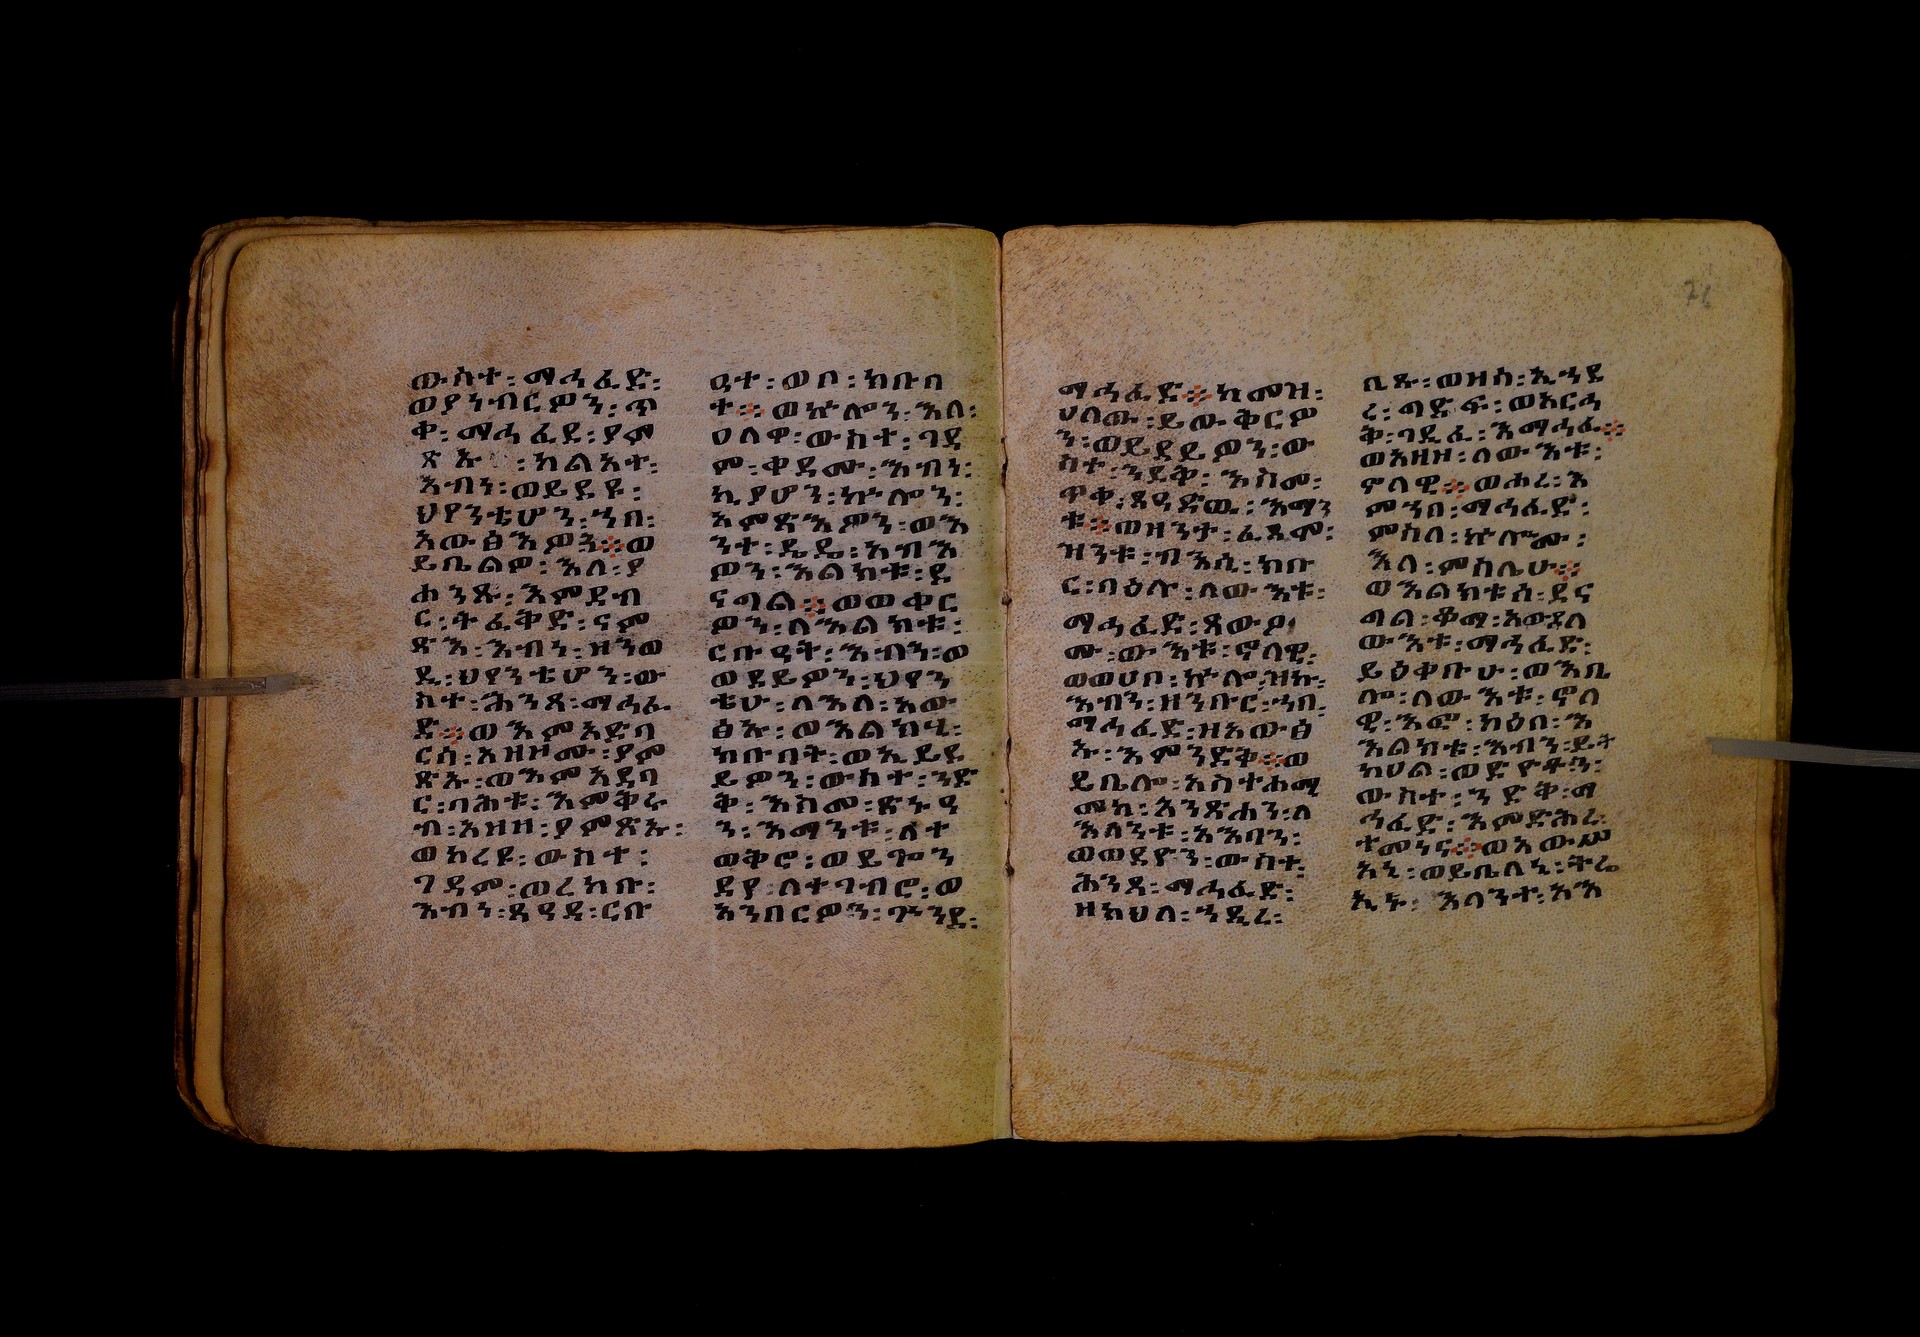 ውስተ፡ማኅፈድ፡
ወያንብርዎን፡ጥ
ቀ፡ማኅፈደ፡ያም
ጽኡ፡ካልአተ፡
እብነ፡ወይደዩ፡
ህየንቴሆን፡ኀበ፡
አውፅእዎን፨ወ
ይቤልዎ፡እለ፡ያ
ሐንጹ፡እምደብ
ር፡ትፈቅድ፡ናም
ጽእ፡እብነ፡ዘንወ
ዲ፡ህየንቴሆን፡ው
ስተ፡ሕንጻ፡ማኅፈ
ድ፨ወእምአድባ
ርሰ፡አዘዞሙ፡ያም
ጽኡ፡ወእምአደባ
ር፡ባሕቱ፡እምቅሩ
ብ፡አዘዘ፡ያምጽኡ፡
ወከረዩ፡ውስተ፡
ገዳም፡ወረከቡ፡
እብነ፡ጸዓዳ፡ርቡ
ዓተ፡ወቦ፡ክቡባ
ተ፨ወኵሎን፡እለ፡
ሀለዋ፡ውስተ፡ገዳ
ም፡ቀዳሙ፡እብነ፡
ኪያሆን፡ኵሎን፡
አምጽእዎን፡ወእ
ንተ፡ዴዴ፡አብእ
ዎን፡እልክቱ፡ደ
ናግል፨ወወቀር
ዎን፡ለእልክቱ፡
ርቡዓት፡እብን፡ወ
ወደይዎን፡ህየን
ቴሁ፡ለእለ፡አው
ፅኡ፡ወእልክሂ፡
ክቡባት፡ወኢይደ
ይዎን፡ውስተ፡ንድ
ቅ፡እስመ፡ጽኑዓ
ን፡እማንቱ፡ለተ
ወቅሮ፡ወይጐን
ደያ፡ለተገብሮ፡ወ
አንበርዎን፡ጕንደ፡
ማኅፈድ፨ከመዝ፡
ህለዉ፡ይውቅርዎ
ን፡ወይደይዎን፡ው
ስተ፡ንደቅ፡እስመ፡
ጥቀ፡ጸዓድው፡እማን
ቱ፨ወዘንተ፡ፈጺሞ፡
ዝንቱ፡ብእሲ፡ክቡ
ር፡በዕሉ፡ለውእቱ፡
ማኅፈድ፡ጸውዖ
ሙ፡ውእቱ፡ኖላዊ፡
ወወሀቦ፡ኵሎ፡ዝኩ፡
እብን፡ዘንቡር፡ኀበ፡
ማኅፈድ፡ዘአውፅ
ኡ፡እምንድቅ፨ወ
ይቤሎ፡አስተሐሚ
መከ፡አንጽሐን፡ለ
እላንቱ፡አእባን፡
ወወደዮን፡ውስተ፡
ሕንጻ፡ማኅፈድ፡
ዘክህለ፡ኀዲረ፡
ቢጹ፡ወዘሰ፡ኢኀደ
ረ፡ግድፍ፡ወአርኅ
ቅ፡ገዲፈ፡እማኅፈ፨
ወአዘዘ፡ለውእቱ፡
ኖላዊ፨ወሐረ፡እ
ምኀበ፡ማኅፈድ፡
ምስለ፡ኵሎሙ፡
እለ፡ምስሌሁ፨
ወእልክቱሰ፡ደና
ግል፡ቆማ፡አውደለ
ውእቱ፡ማኅፈድ፡
ይዕቀቡሁ፡ወእቤ
ሎ፡ለውእቱ፡ኖላ
ዊ፡እፎ፡ክዕበ፡እ
እልክቱ፡እብን፡ይት
ከሀል፡ወድዮቶን፡
ውስተ፡ንድቅ፡ማ
ኅፈድ፡እምድሕረ፡
ተመነና፨ወአውሥ
አኒ፡ወይቤለኒ፡ትሬ
ኢኑ፡እላንተ፡አእ